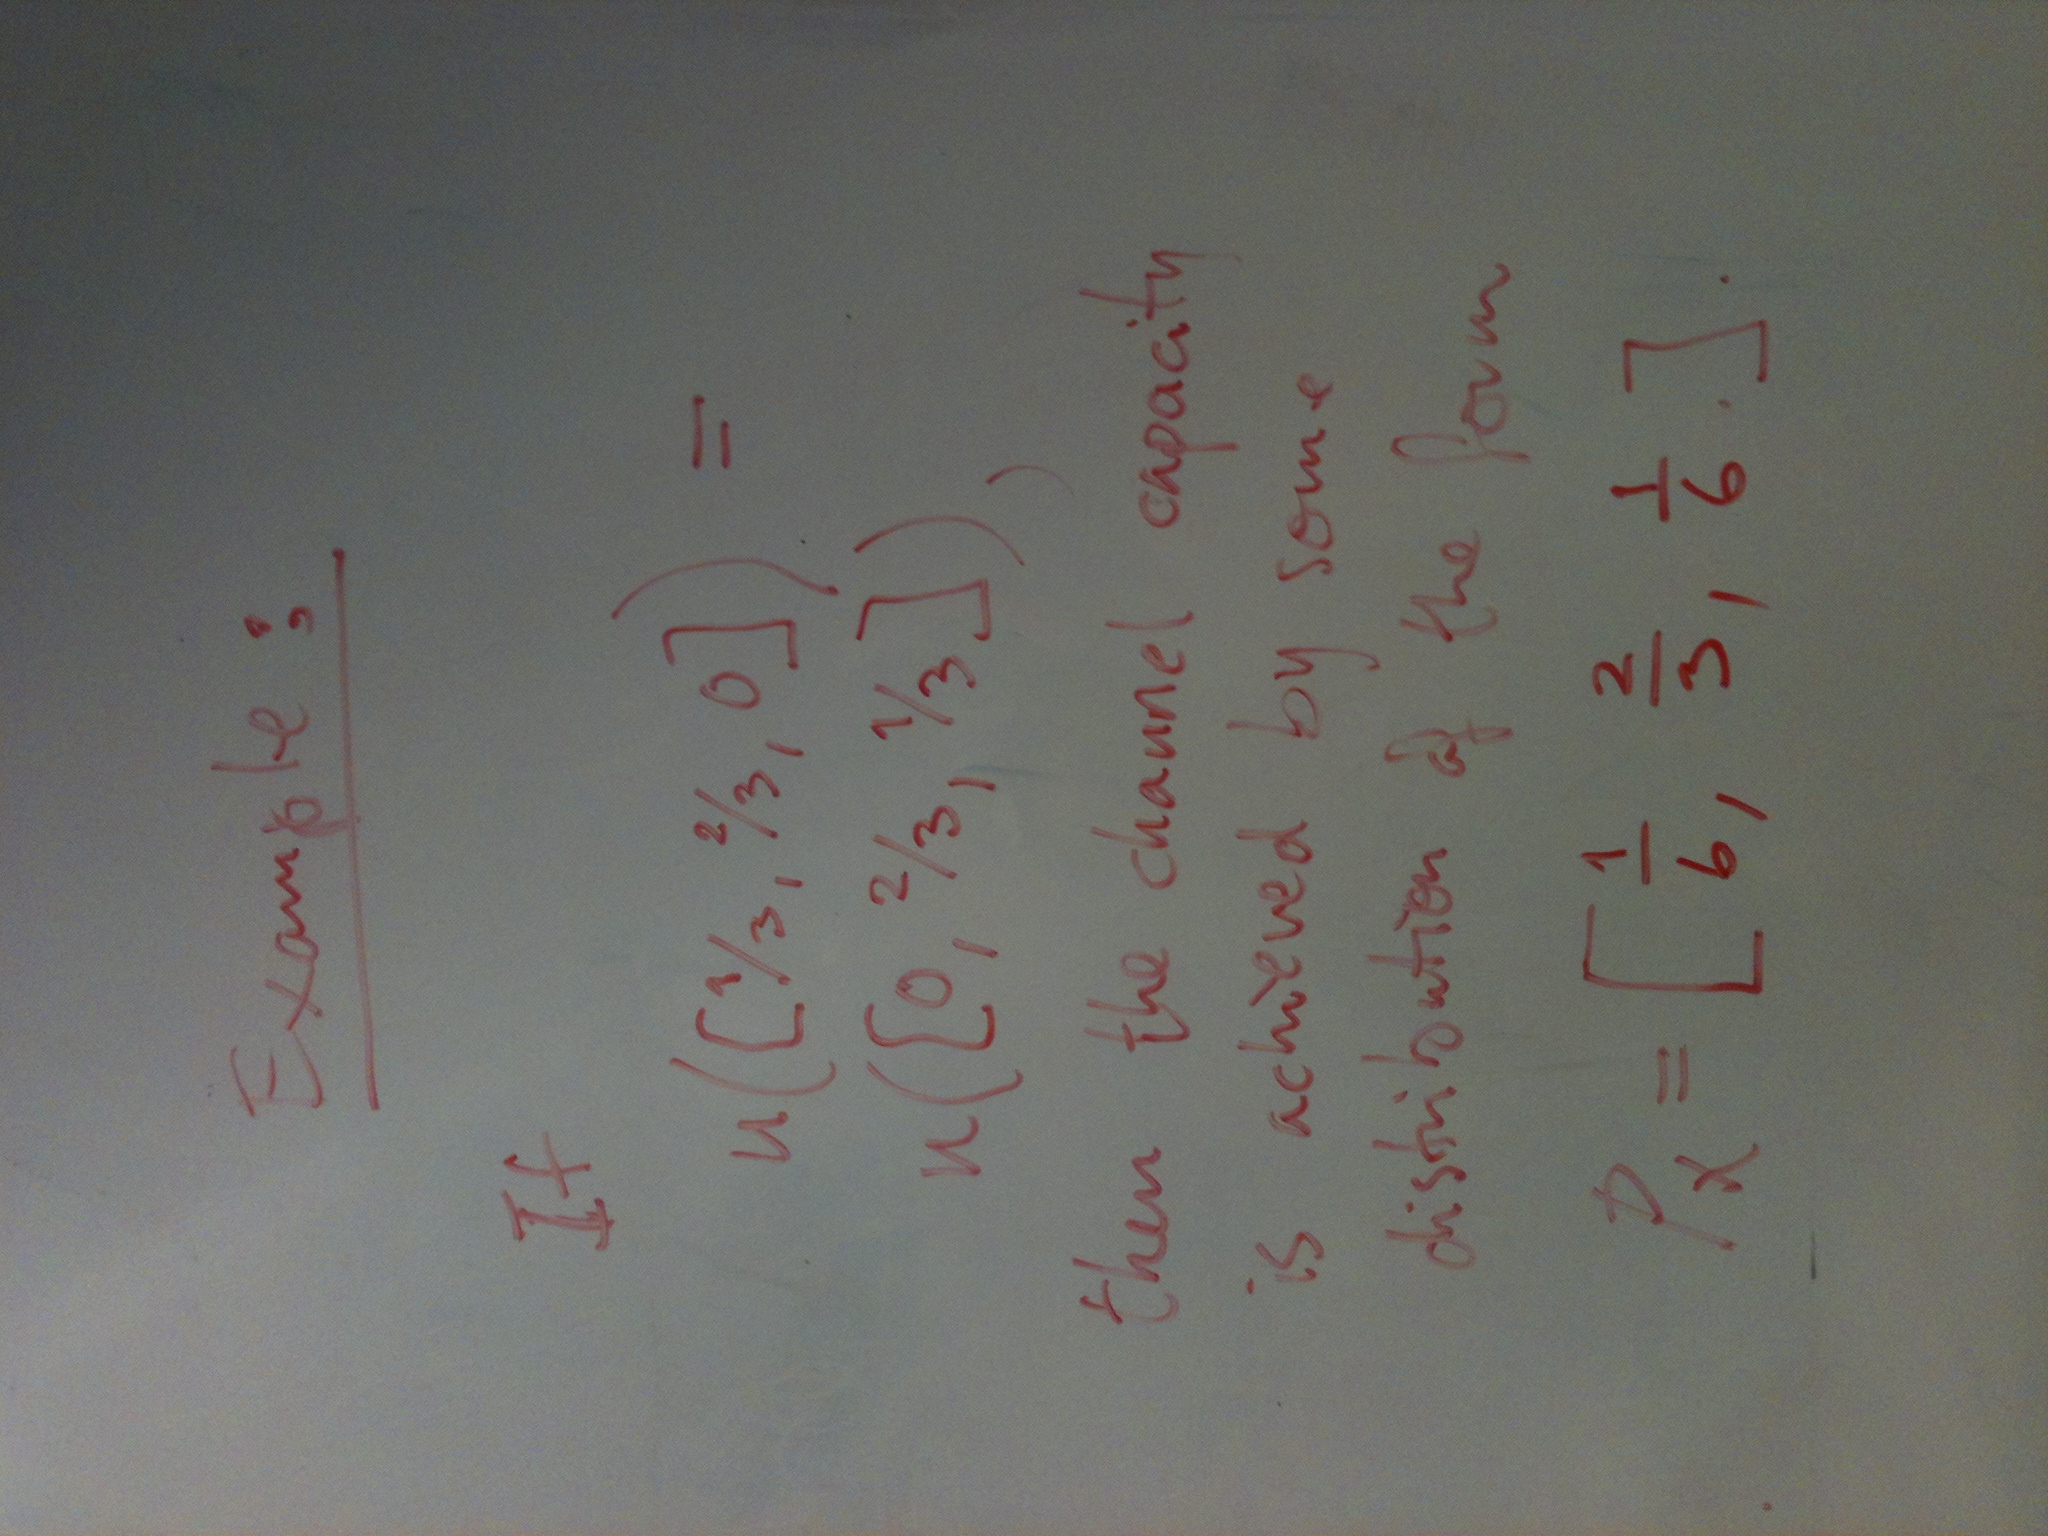 Example:
If
u([1/3, 2/3, 0]) =
u([0, 2/3, 1/3]),
then the channel capacity
is achieved by some
distribution of the form
Px = [1/6, 2/3, 1/6].